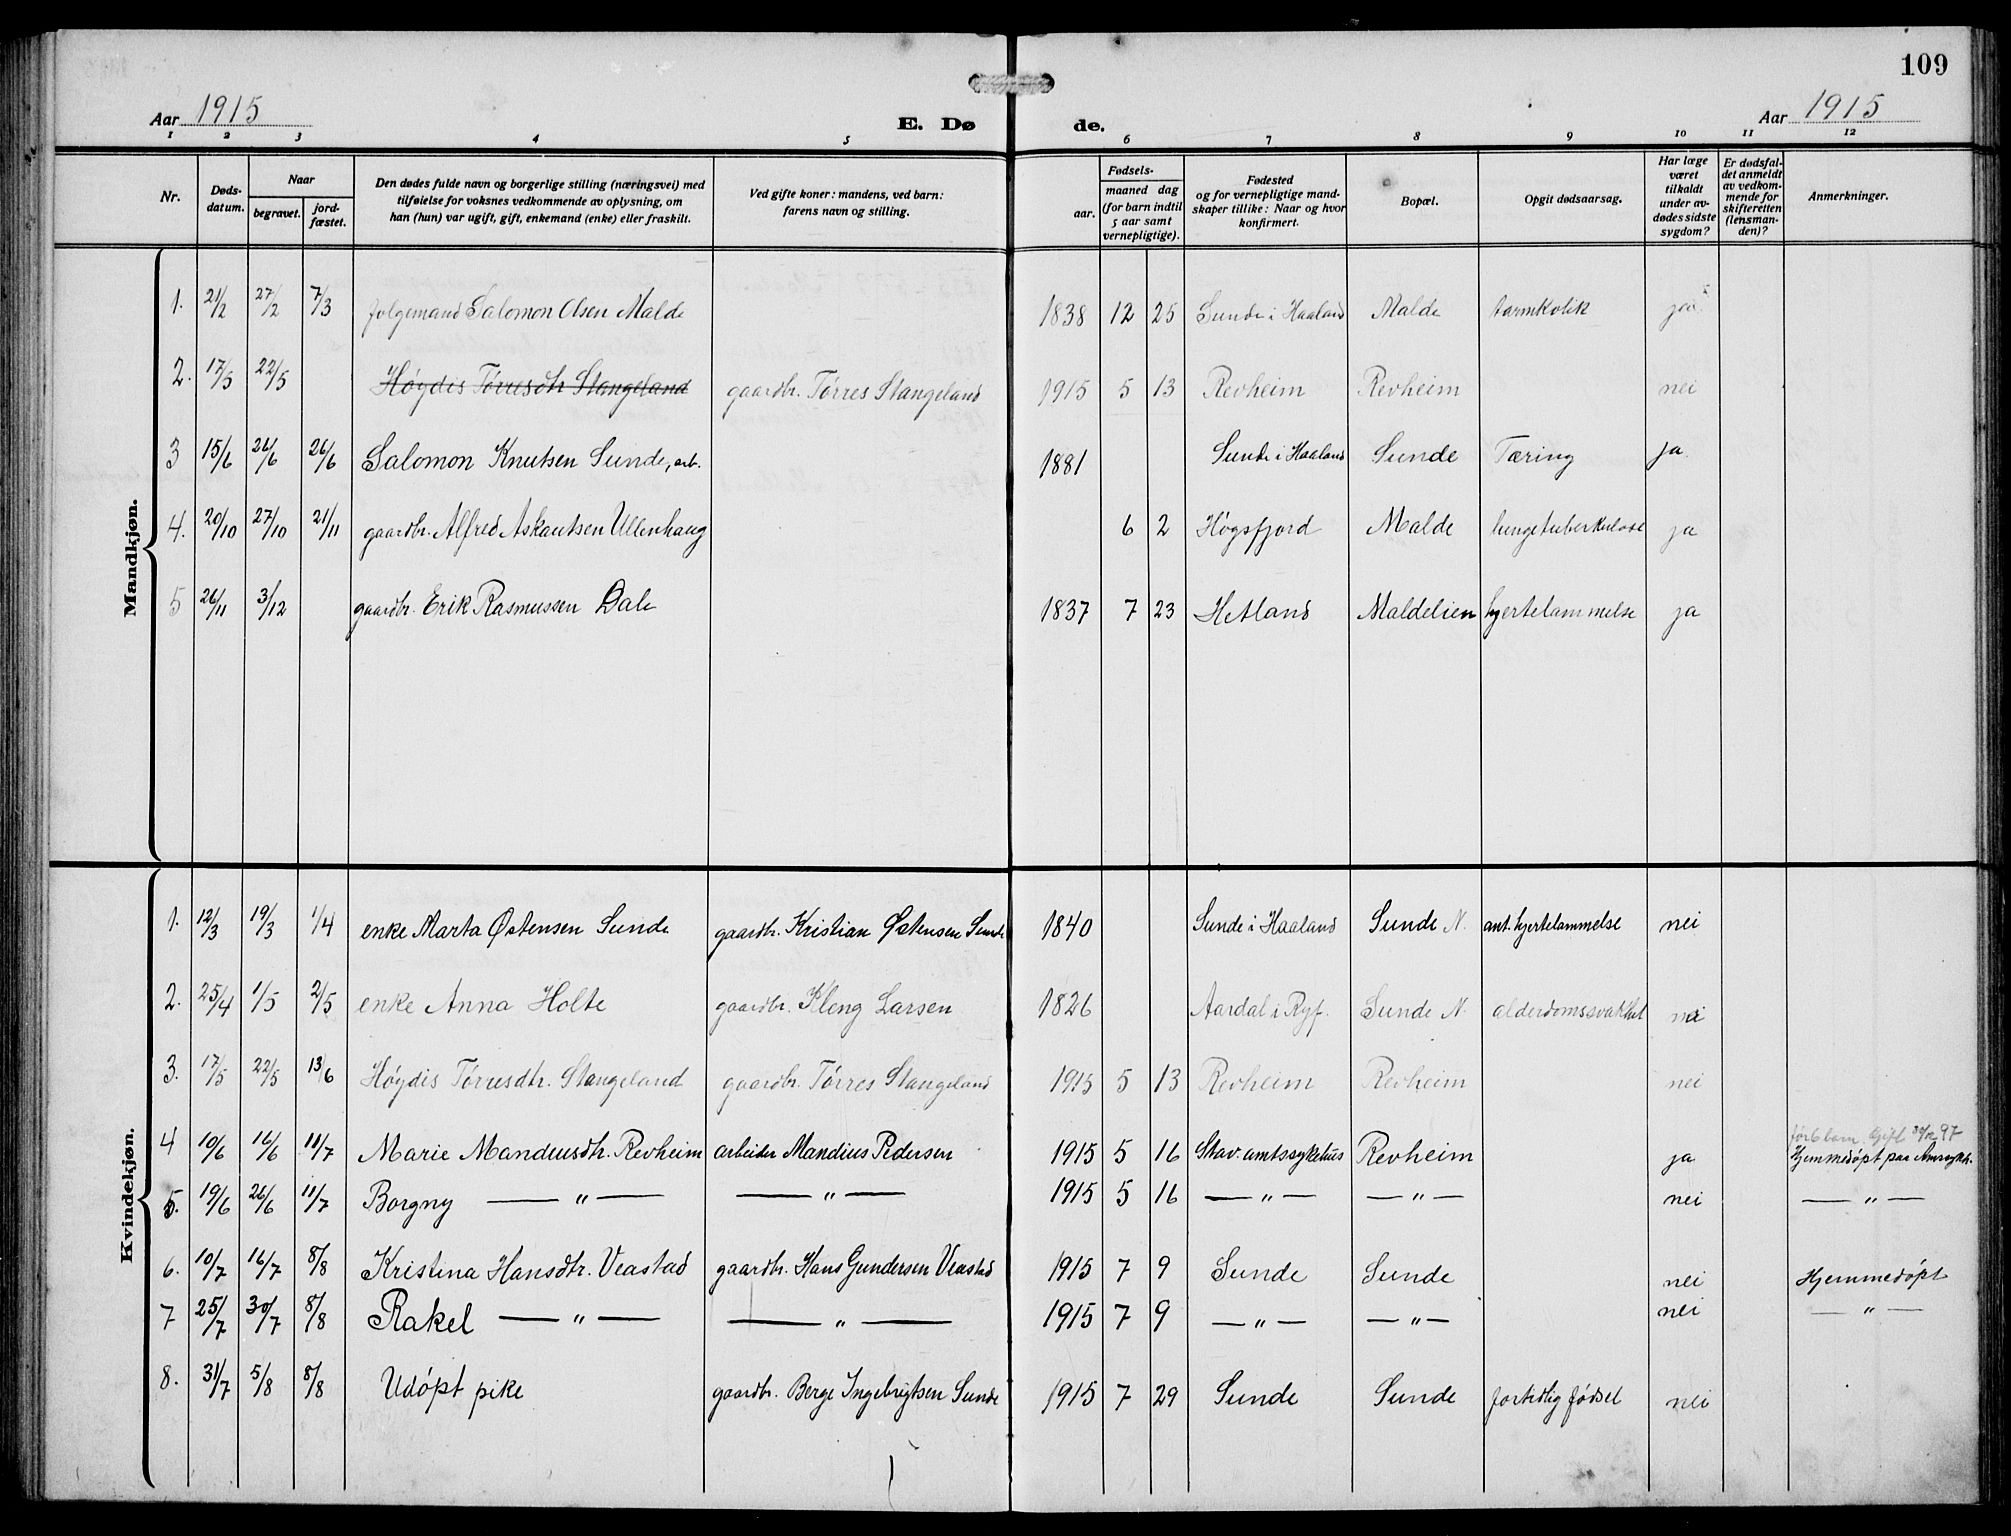 109
Aar 1915
E. Dø
de.
Aar 1915
1 2 3 4 5 6 7 8 9 10 11 12
Nr.
Døds-datum.
Naar
begravet.
jord-fæstet.
Den dødes fulde navn og borgerlige stilling (næringsvei) med
tilføielse for voksnes vedkommende av oplysning, om
han (hun) var ugift, gift, enkemand (enke) eller fraskilt.
Ved gifte koner: mandens, ved barn:
farens navn og stilling.
Fødsels-
aar.
maaned dag
(for barn indtil
5 aar samt
vernepligtige).
Fødested
og for vernepligtige mand-
skaper tillike: Naar og hvor
konfirmert.
Bopæl.
Opgit dødsaarsag.
Har læge
været
tilkaldt
under av-
dødes sidste
sygdom?
Er dødsfal-
det anmeldt
av vedkom-
mende for
skifteretten
(lensman-
den)?
Anmerkninger.
Mandkjøn.
1. 21/2 27/2 7/3 folgemand Salomon Olsen Malde 1838 12 25 Sunde i Haaland Malde tarmkolik ja
2. 17/5 22/5 Høydis Tørresdtr Stangeland gaardbr. Tørres Stangeland 1915 5 13 Revheim Revheim nei
3 15/6 26/6 26/6 Salomon Knutsen Sunde, arb. 1881 Sunde i Haaland Sunde Tæring ja.
4. 20/10 27/10 21/11 gaardbr. Alfred Askautsen Ullenhaug 6 2 Høgsfjord Malde lungetuberkulose ja
5 26/11 3/12 gaardbr. Erik Rasmussen Dale 1837 7 23 Hetland Maldelien hjertelammelse ja
Kvindekjøn.
1. 12/3 19/3 1/4 enke Marta Østensen Sunde gaardbr. Kristian Østensen Sunde 1840 Sunde i Haaland Sunde N. ant. hjertelammelse nei
2. 25/4 1/5 2/5 enke Anna Holte gaardbr. Kleng Larsen 1826 Aardal i Ryf. Sunde N. alderdomssvakhet nei
3. 17/5 22/5 13/6 Høydis Tørresdtr. Stangeland gaardbr. Tørres Stangeland 1915 5 13 Revheim Revheim nei
4 10/6 16/6 11/7 Marie Mandiusdtr. Revheim arbeider Mandius Pedersen 1915 5 16 Stav. amtssykehus Revheim ja Hjemmedøpt paa
5. 19/6 26/6 11/7 Borgny — " — — " — 1915 5 16 — " — — " — nei — " —
6. 10/7 16/7 8/8 Kristina Hansdtr. Veastad gaardbr. Hans Gundersen Veastad 1915 7 9 Sunde Sunde nei Hjemmedøpt
7 25/7 30/7 8/8 Rakel — " — — " — 1915 7 9 — " — — " — nei — " —
8. 31/7 5/8 8/8 Udøpt pike gaardbr. Berge Ingebrigtsen Sunde 1915 7 29 Sunde Sunde fortidlig fødsel nei